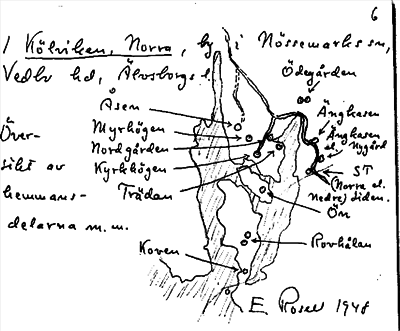 6
1 Kölviken, Norra, by i Nössemarks sn,
Vedbo hd, Älvsborgs l.
Ödegården
Åsen
Ängkasen
Myrhögen
Ängkasen
el. Nygård
Nordgården
Kyrkhögen
ST
(Norra el.
Nedre) Siden.
Trädan
Ön
Över-
sikt av
hemmans-
delarna m.m.
Koven
Rovhålan
E Rosell 1948